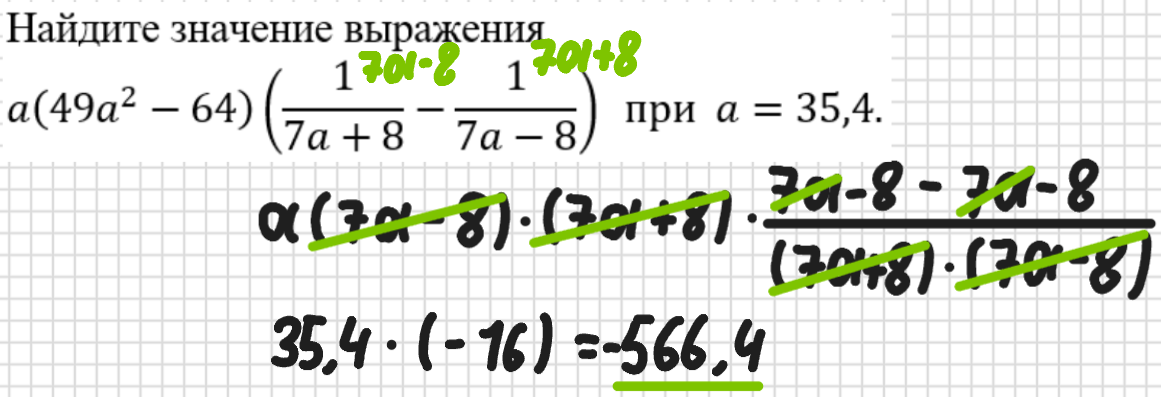 Найдите значение выражения
a(49a² − 64) (1/(7a + 8) 7a-8 − 1/(7a − 8) 7a+8) при a = 35,4.
a(7a-8)·(7a+8)·(7a-8-7a-8)/((7a+8)·(7a-8))
35,4·(-16)=-566,4